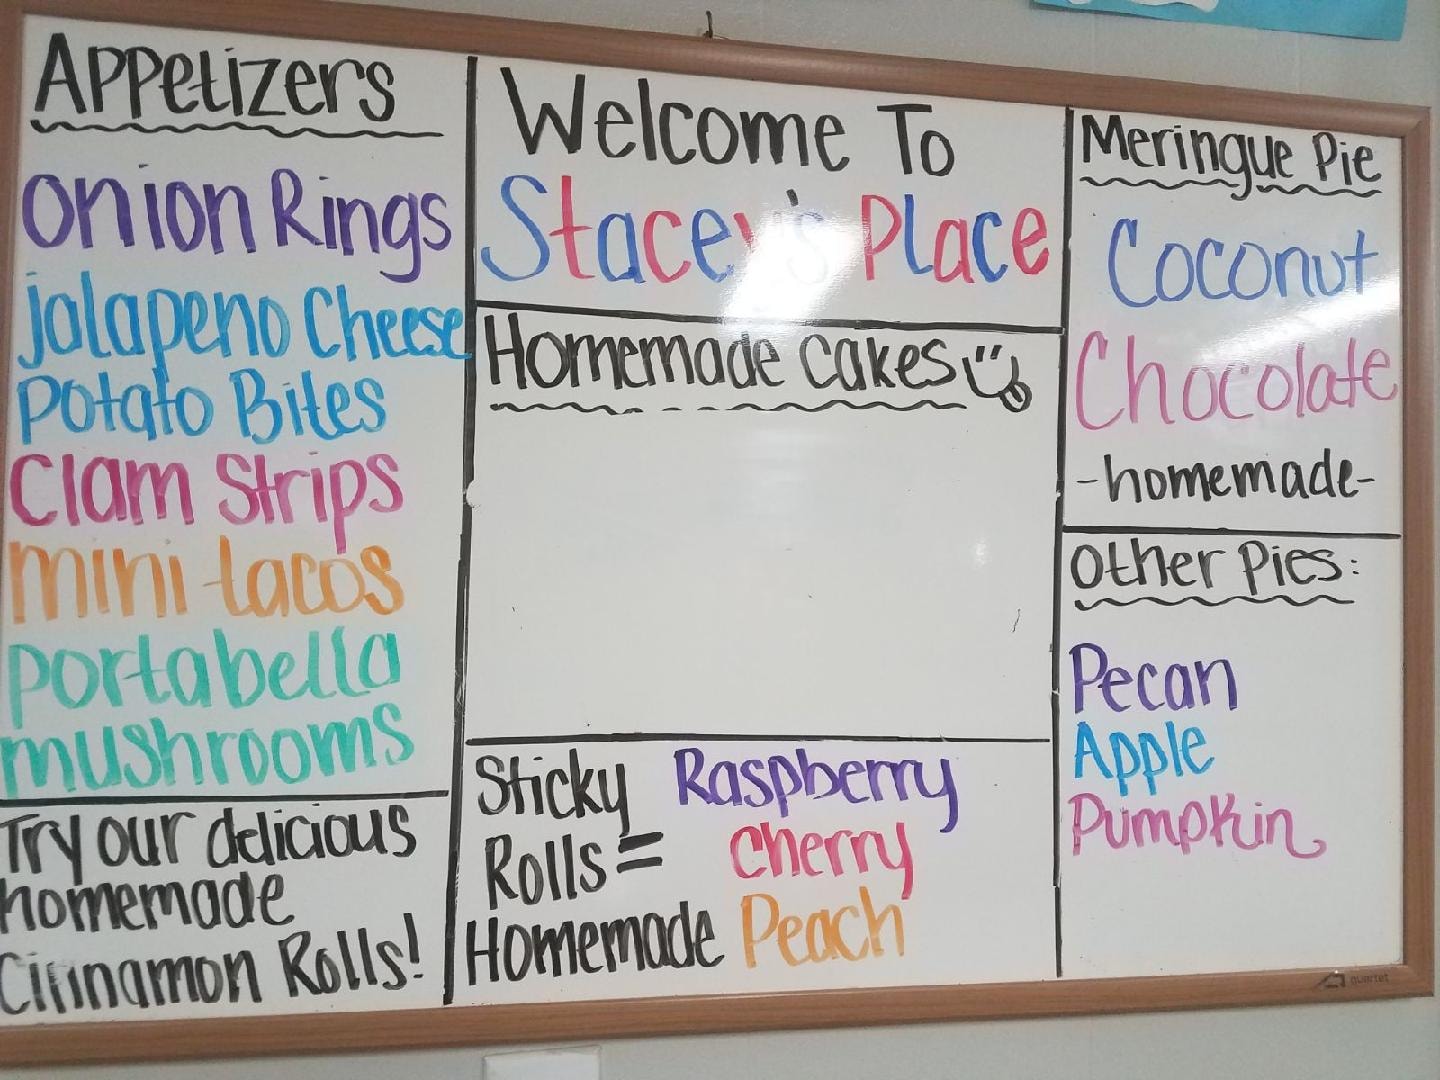 Appetizers
Onion Rings
jalapeno Cheese
Potato Bites
Clam Strips
mini tacos
portabella
mushrooms
Try our delicious
homemade
Cinnamon Rolls!
Welcome To
Stacey's Place
Homemade Cakes
Sticky Raspberry
Rolls= Cherry
Homemade Peach
Meringue Pie
Coconut
Chocolate
-homemade-
Other Pies:
Pecan
Apple
Pumpkin
quartet